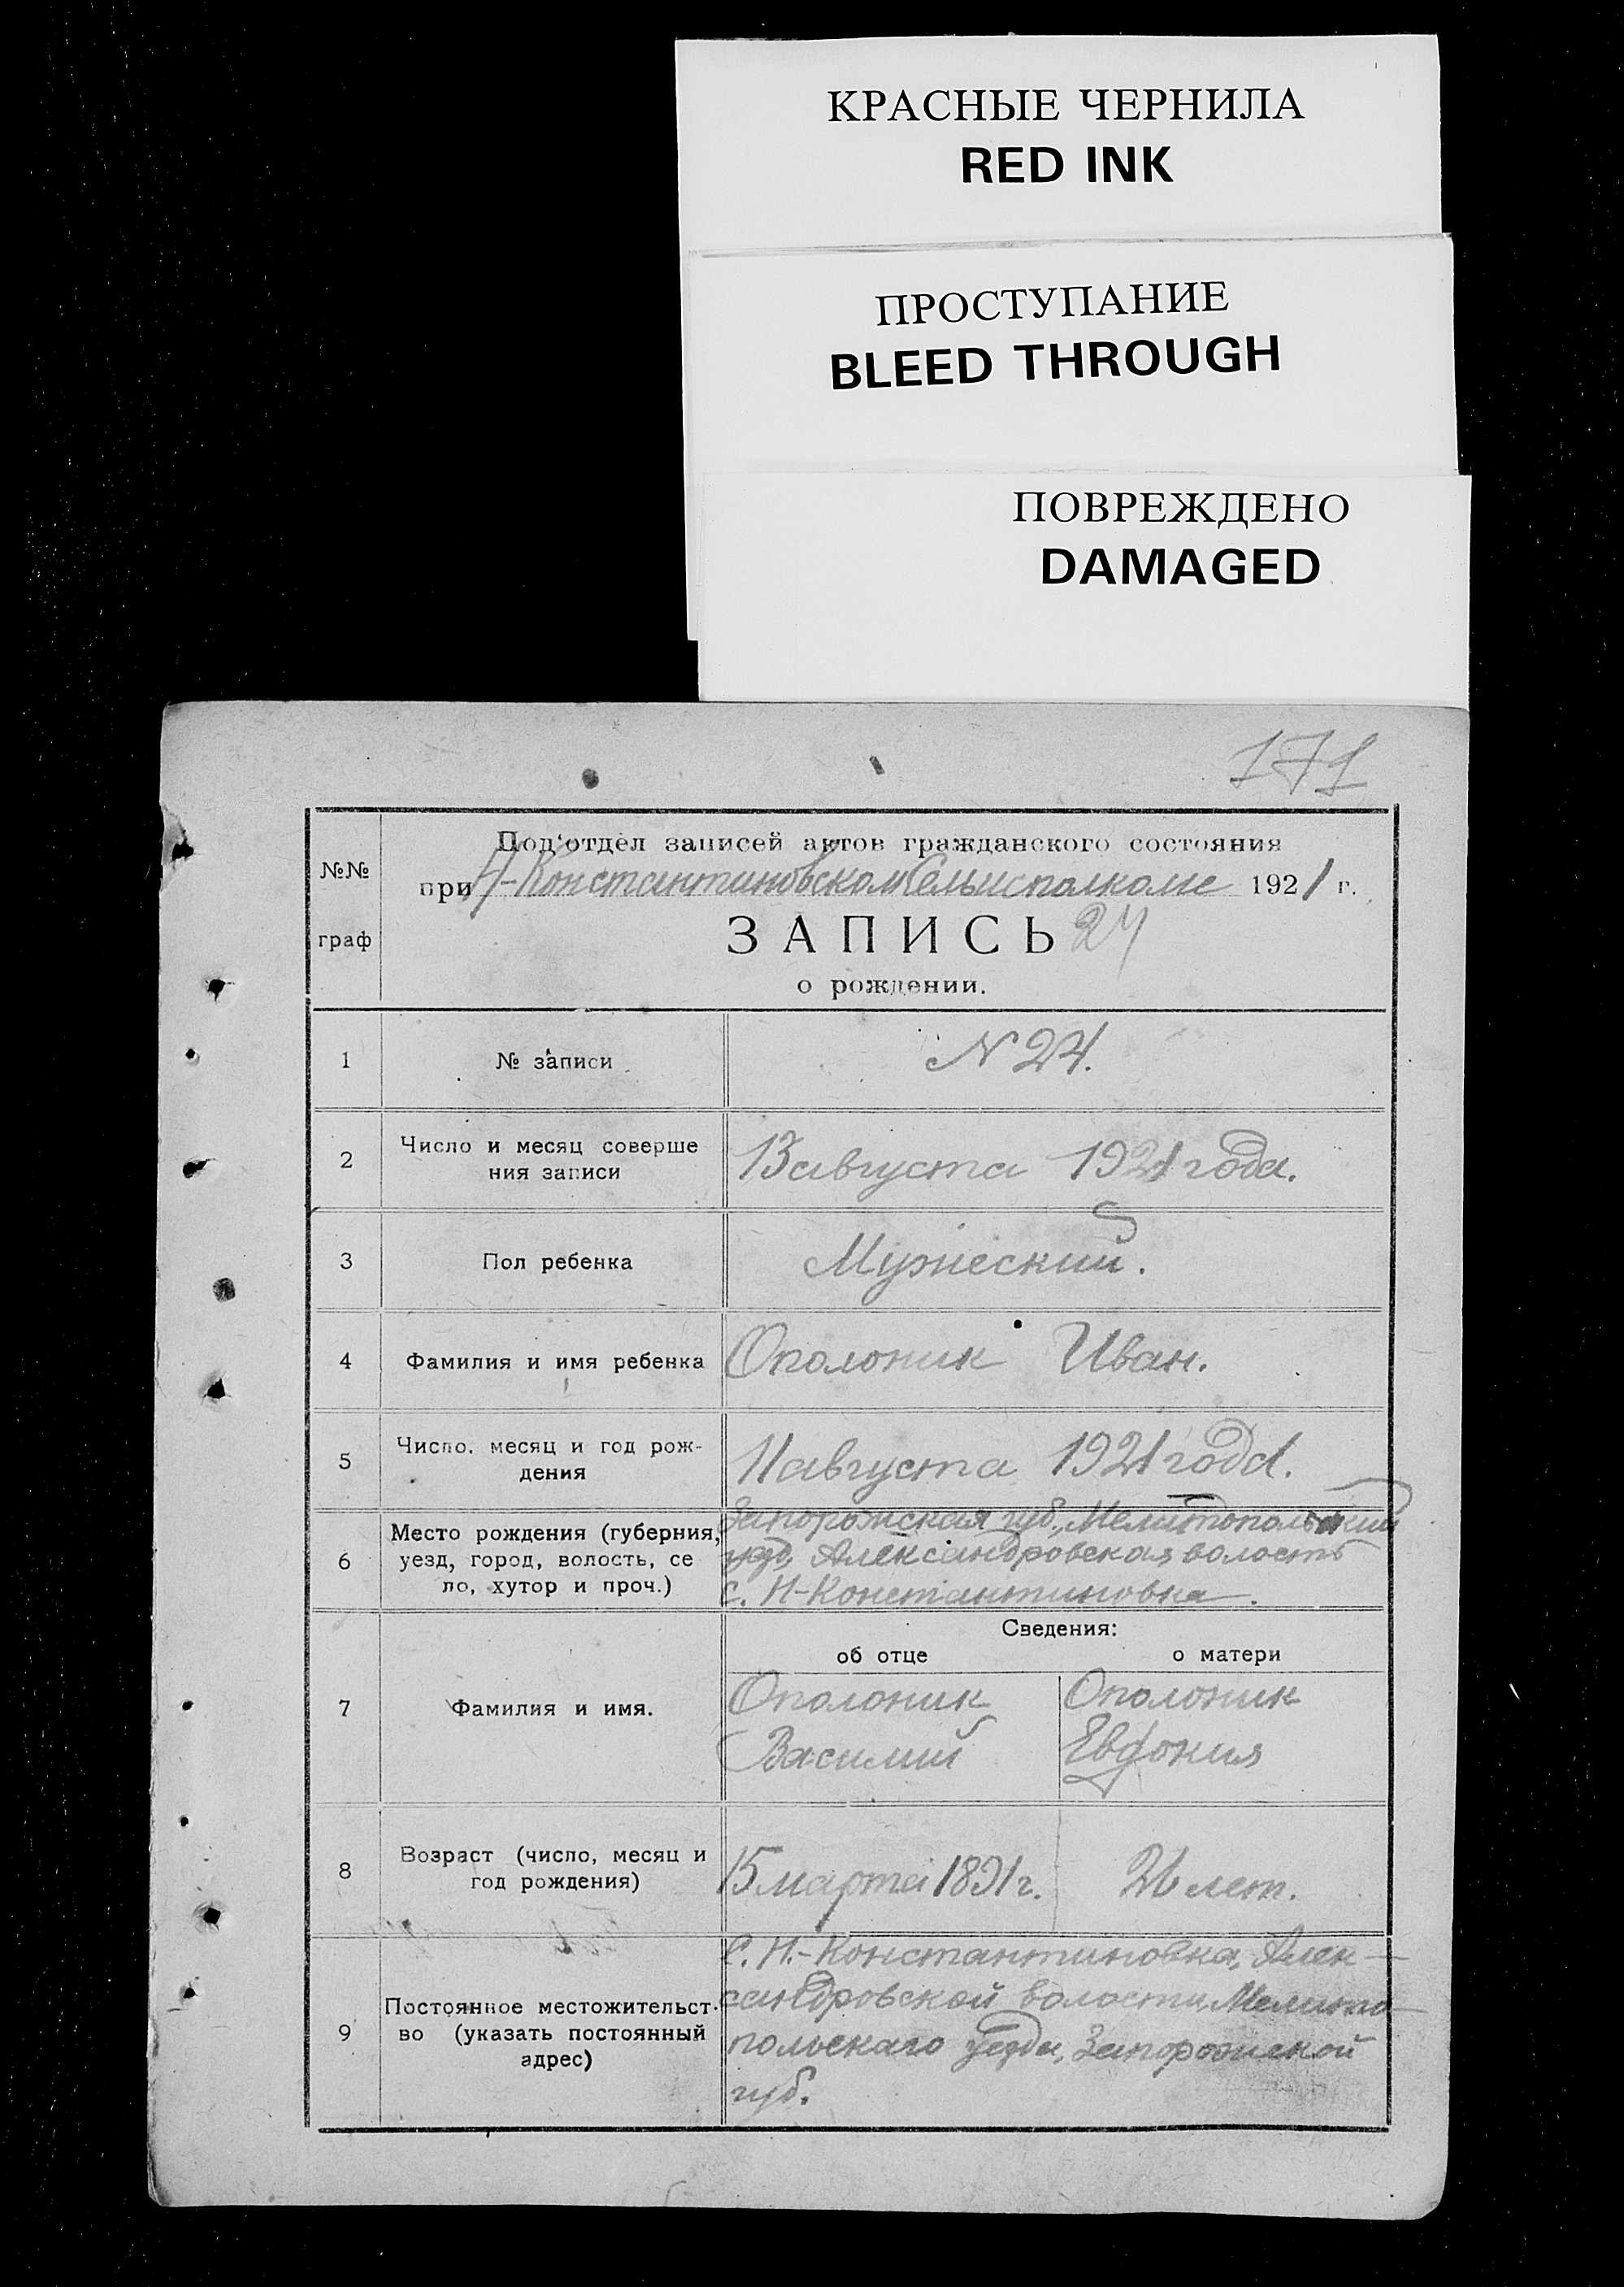 КРАСНЫЕ ЧЕРНИЛА
RED INK
ПРОСТУПАНИЕ
BLEED THROUGH
ПОВРЕЖДЕНО
DAMAGED
171
№№ граф
Под'отдел записей актов гражданского состояния
при Н-Константиновском Сельисполкоме 1921 г.
ЗАПИСЬ 24
о рождении.
1 № записи N 24.
2 Число и месяц соверше
ния записи
13 августа 1921 года.
3 Пол ребенка Мужеский.
4 Фамилия и имя ребенка Ополоник Иван.
5 Число. месяц и год рож-
дения
11 августа 1921 года.
6 Место рождения (губерния,
уезд, город, волость, се
ло, хутор и проч.)
Запорожская губ., Мелитопольский
уезд, Александровская волость
с. Н-Константиновка.
Сведения:
об отце о матери
7 Фамилия и имя.
Ополоник Ополоник
Василий Евдокия
8 Возраст (число, месяц и
год рождения)
15 марта 1891 г. лет.
9 Постоянное местожительст-
во (указать постоянный
адрес)
С. Н.-Константиновка, Алек-
сандровской волости, Мелито-
польскаго уезда, Запорожской
губ.